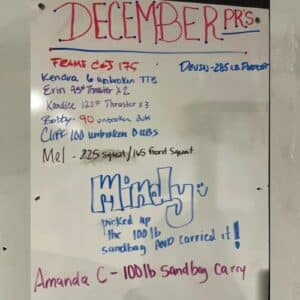 DECEMBER PR'S
FRAME C&J 175
DEVIN-285 LB
Kendra 6 unbroken TTB
Erin 95# Thruster x2
Kandice 125# Thruster x3
Bobby 90 unbroken dubs
Cliff 100 unbroken Dubs
Mel - 225 squat/165 front squat
Mindy
picked up
the 100 lb
sandbag AND carried it!
Amanda C - 100 lb Sandbag Carry